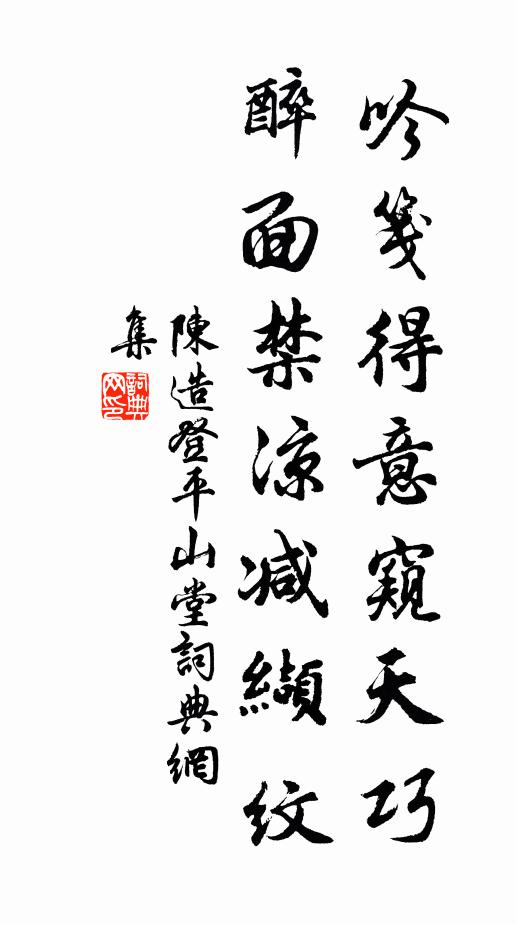 吟箋得意窺天巧
醉面禁涼減纈紋
陳造登平山堂詞典網
集
詞典
网印